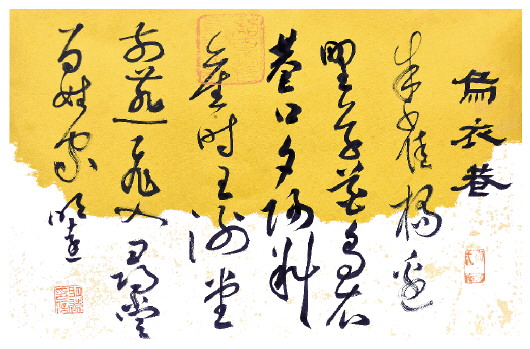 烏衣巷
朱雀橋邊
野草花烏衣
巷口夕陽斜
舊時王謝堂
前燕飛入尋常
百姓家